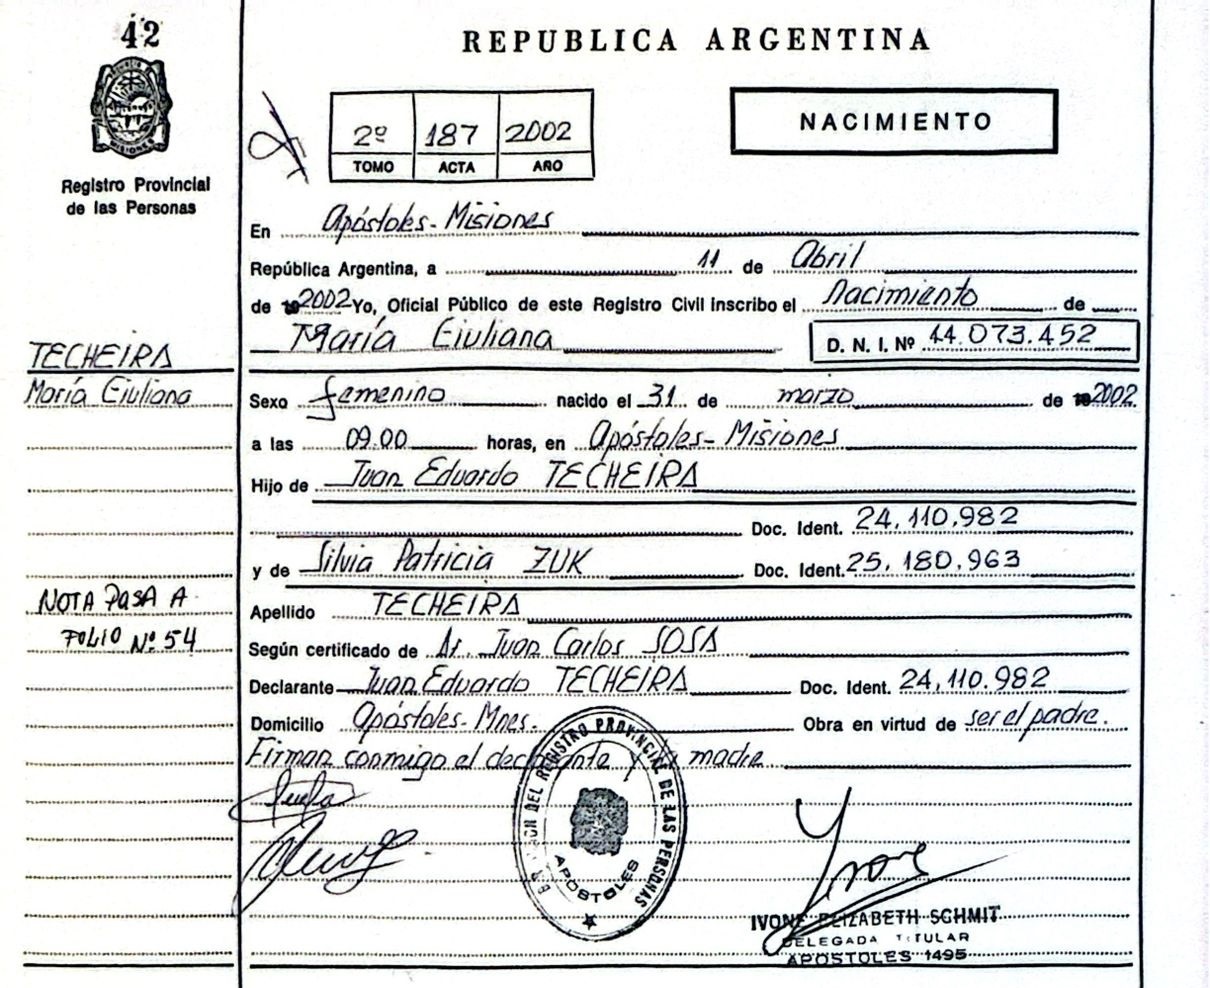 42
REPUBLICA ARGENTINA
2º 187 2002
TOMO ACTA AÑO
NACIMIENTO
Registro Provincial
de las Personas
En Apóstoles-Misiones
República Argentina, a 11 de Abril
de 2002 Yo, Oficial Público de este Registro Civil inscribo el Nacimiento de
María Eiuliana D. N. I. Nº 44.073.452
TECHEIRA
María Eiuliana
Sexo femenino nacido el 31 de marzo de 2002
a las 09.00 horas, en Apóstoles-Misiones
Hijo de Juan Eduardo TECHEIRA
Doc. Ident. 24.110.982
y de Silvia Patricia ZUK Doc. Ident. 25.180.963
NOTA PASA A
FOLIO Nº 54
Apellido TECHEIRA
Según certificado de Dr. Juan Carlos SOSA
Declarante Juan Eduardo TECHEIRA Doc. Ident. 24.110.982
Domicilio Apóstoles-Mnes. Obra en virtud de ser el padre.
Firman conmigo el declarante y la madre
DEL REGISTRO PROVINCIAL DE LAS PERSONAS
APOSTOLES
IVONE ELIZABETH SCHMIT
DELEGADA TITULAR
APOSTOLES 1495